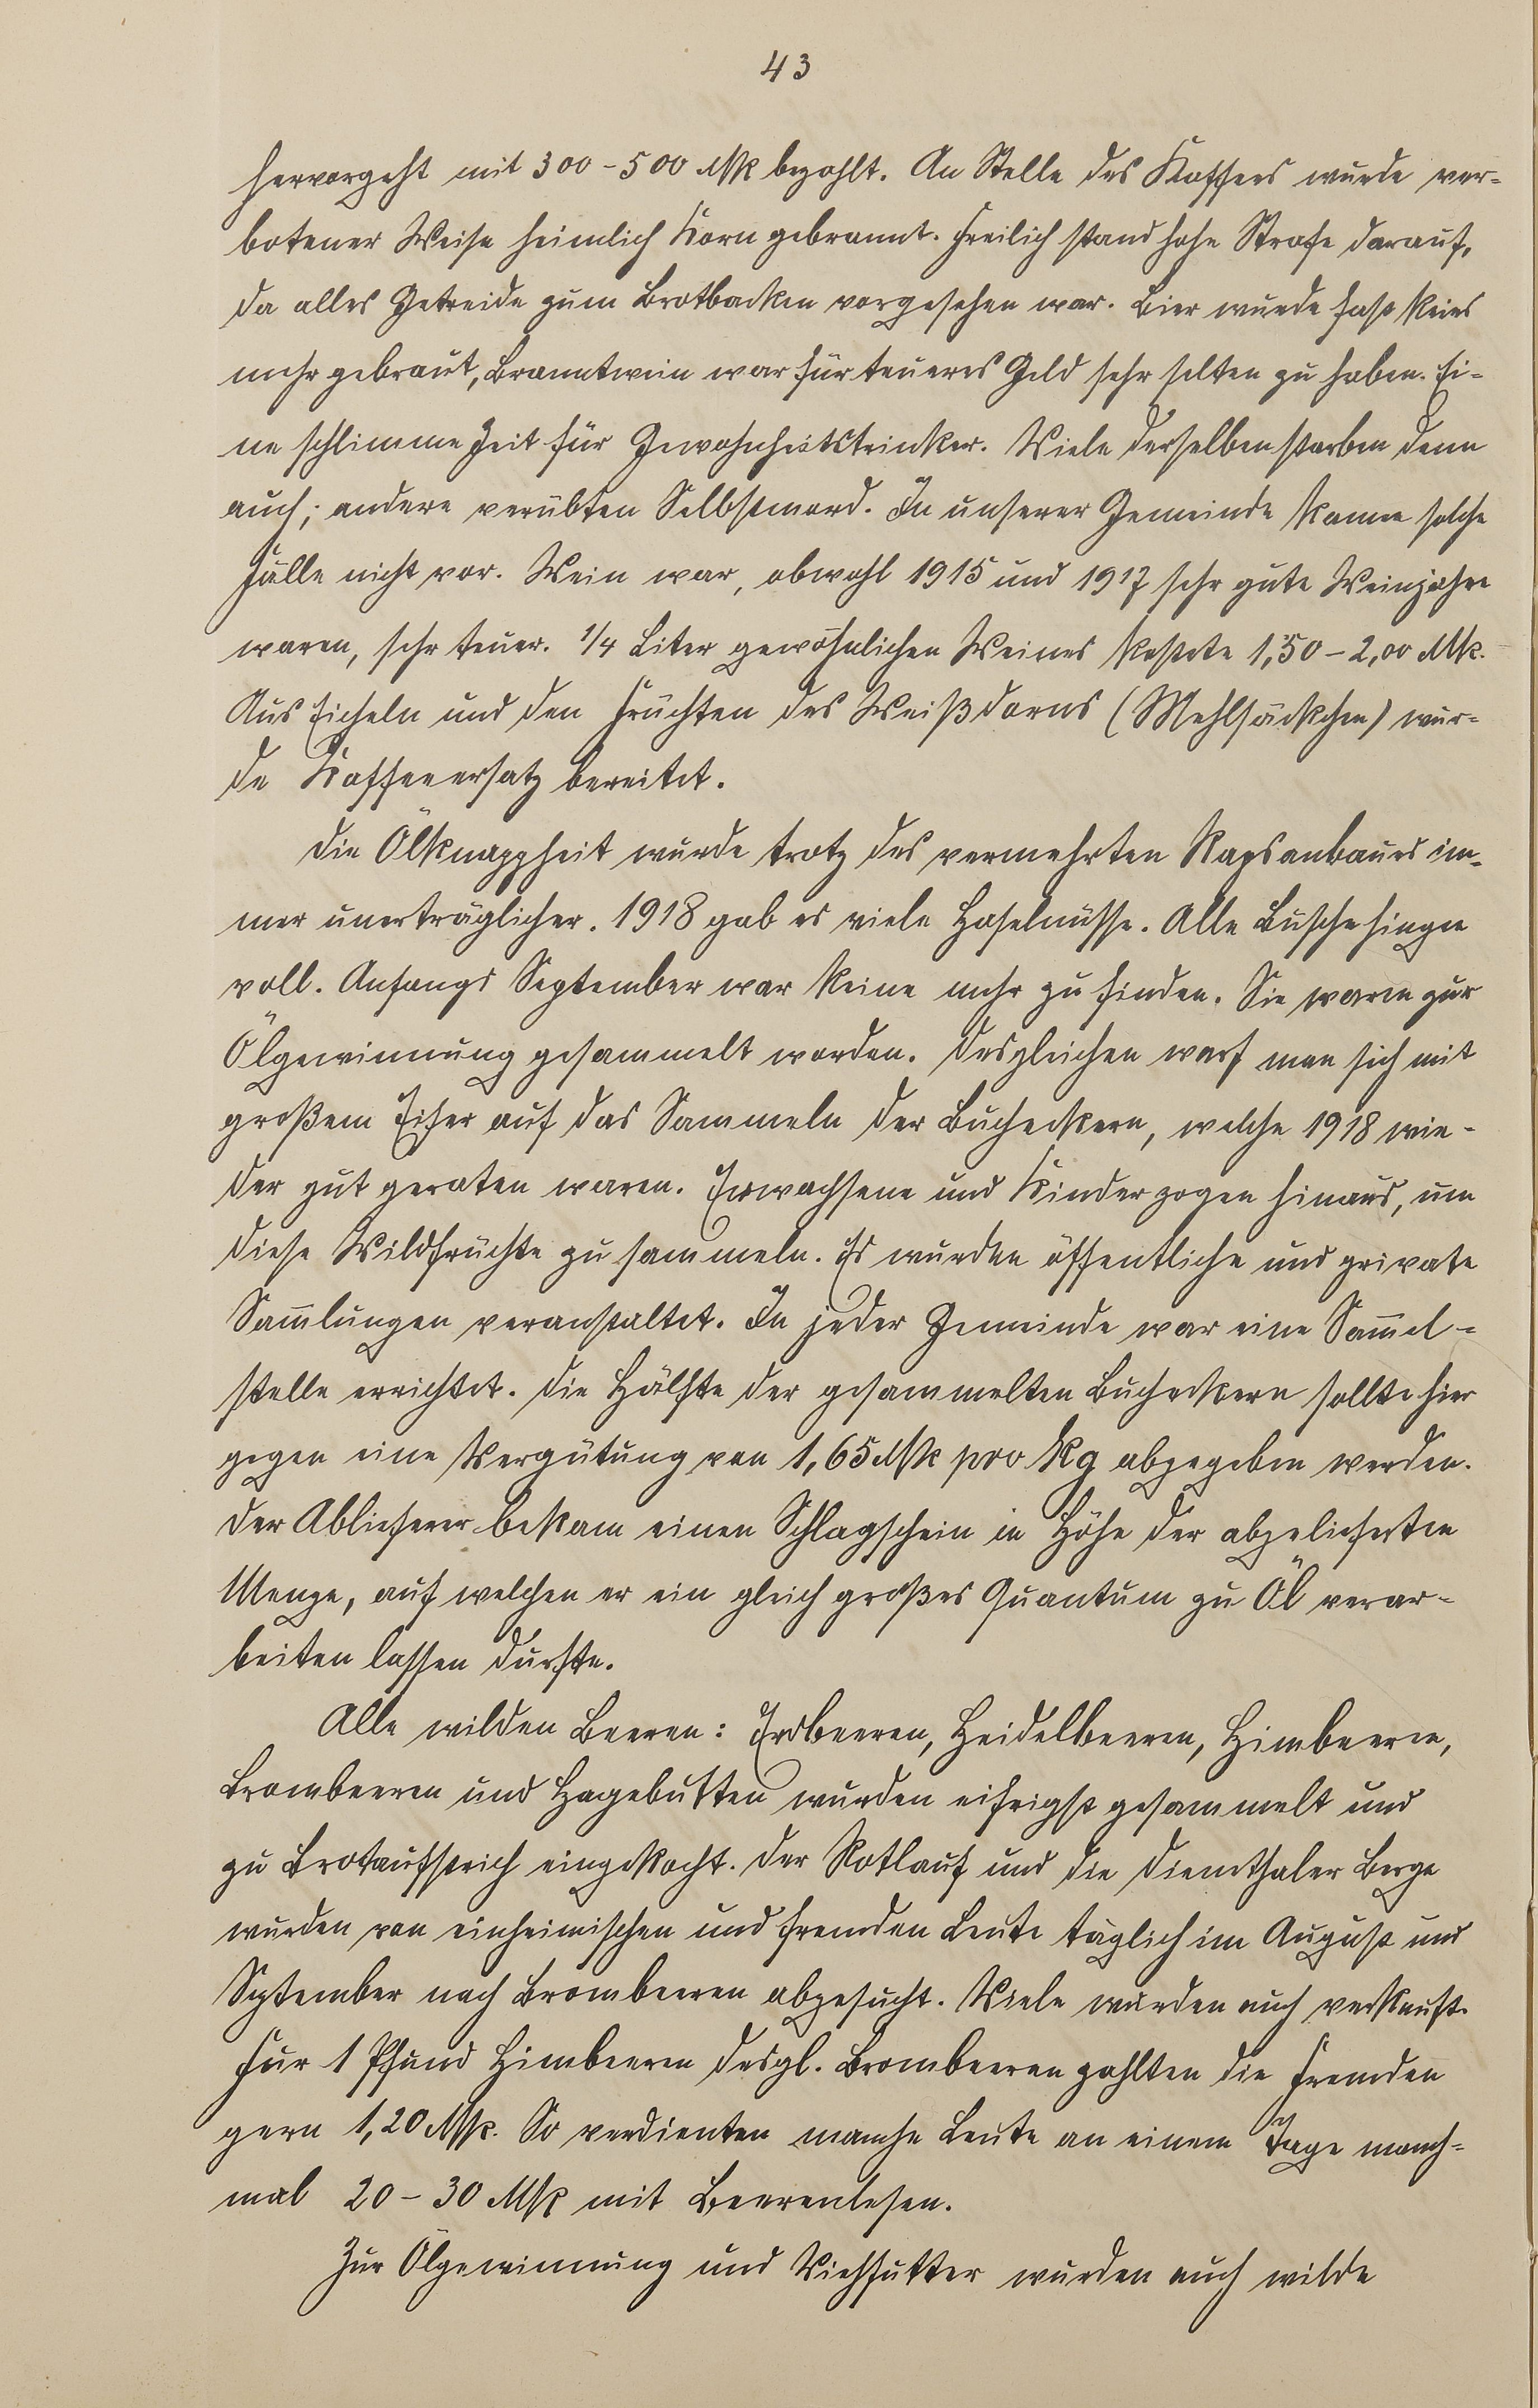 43
hervorgeht mit 300-500 Mk bezahlt. An Stelle des Kaffees wurde ver-
botener Weise heimlich Korn gebrannt. Freilich stand hohe Strafe darauf,
da alles Getreide zum Brotbacken vorgesehen war. Bier wurde fast keins
mehr gebraut, Branntwein war für teueres Geld sehr selten zu haben. Ei-
ne schlimme Zeit für Gewohnheitstrinker. Viele derselben starben denn
auch; andere verübten Selbstmord. In unserer Gemeinde kamen solche
Fälle nicht vor. Wein war, obwohl 1915 und 1917 sehr gute Weinjahre
waren, sehr teuer. 1/4 Liter gewöhnlichen Weines kostete 1,50-2,00 Mk.
Aus Eicheln und den Früchten des Weißdorns (Mehlsäckchen) wur-
de Kaffeeersatz bereitet.
Die Ölknappheit wurde trotz des vermehrten Rapsanbaues im-
mer unerträglicher. 1918 gab es viele Haselnüsse. Alle Büsche hingen
voll. Anfangs September war keine mehr zu finden. Sie waren zur
Ölgewinnung gesammelt worden. Desgleichen warf man sich mit
großem Eifer auf das Sammeln der Bucheckern, welche 1918 wie-
der gut geraten waren. Erwachsene und Kinder zogen hinaus, um
diese Wildfrüchte zu sammeln. Es wurden öffentliche und private
Sam̄lungen veranstaltet. In jeder Gemeinde war eine Sam̄el-
stelle errichtet. Die Hälfte der gesammelten Bucheckern sollte hier
gegen eine Vergütung von 1,65 Mk pro kg abgegeben werden.
Der Ablieferer bekam einen Schlagschein in Höhe der abgelieferten
Menge, auf welchen er ein gleich großes Quantum zu Öl verar-
beiten lassen durfte.
Alle wilden Beeren: Erdbeeren, Heidelbeeren, Himbeeren,
Brombeeren und Hagebutten wurden eifrigst gesammelt und
zu Brotaufstrich eingekocht. Der Rotlauf und die Diemthaler Berge
wurden von einheimischen und fremden Leute täglich im August und
September nach Brombeeren abgesucht. Viele wurden auch verkauft.
Für 1 Pfund Himbeeren desgl. Brombeeren zahlten die Fremden
gern 1,20 Mk. So verdienten manche Leute an einem Tage manch-
mal 20-30 Mk mit Beerenlesen.
Zur Ölgewinnung und Viehfutter wurden auch wilde